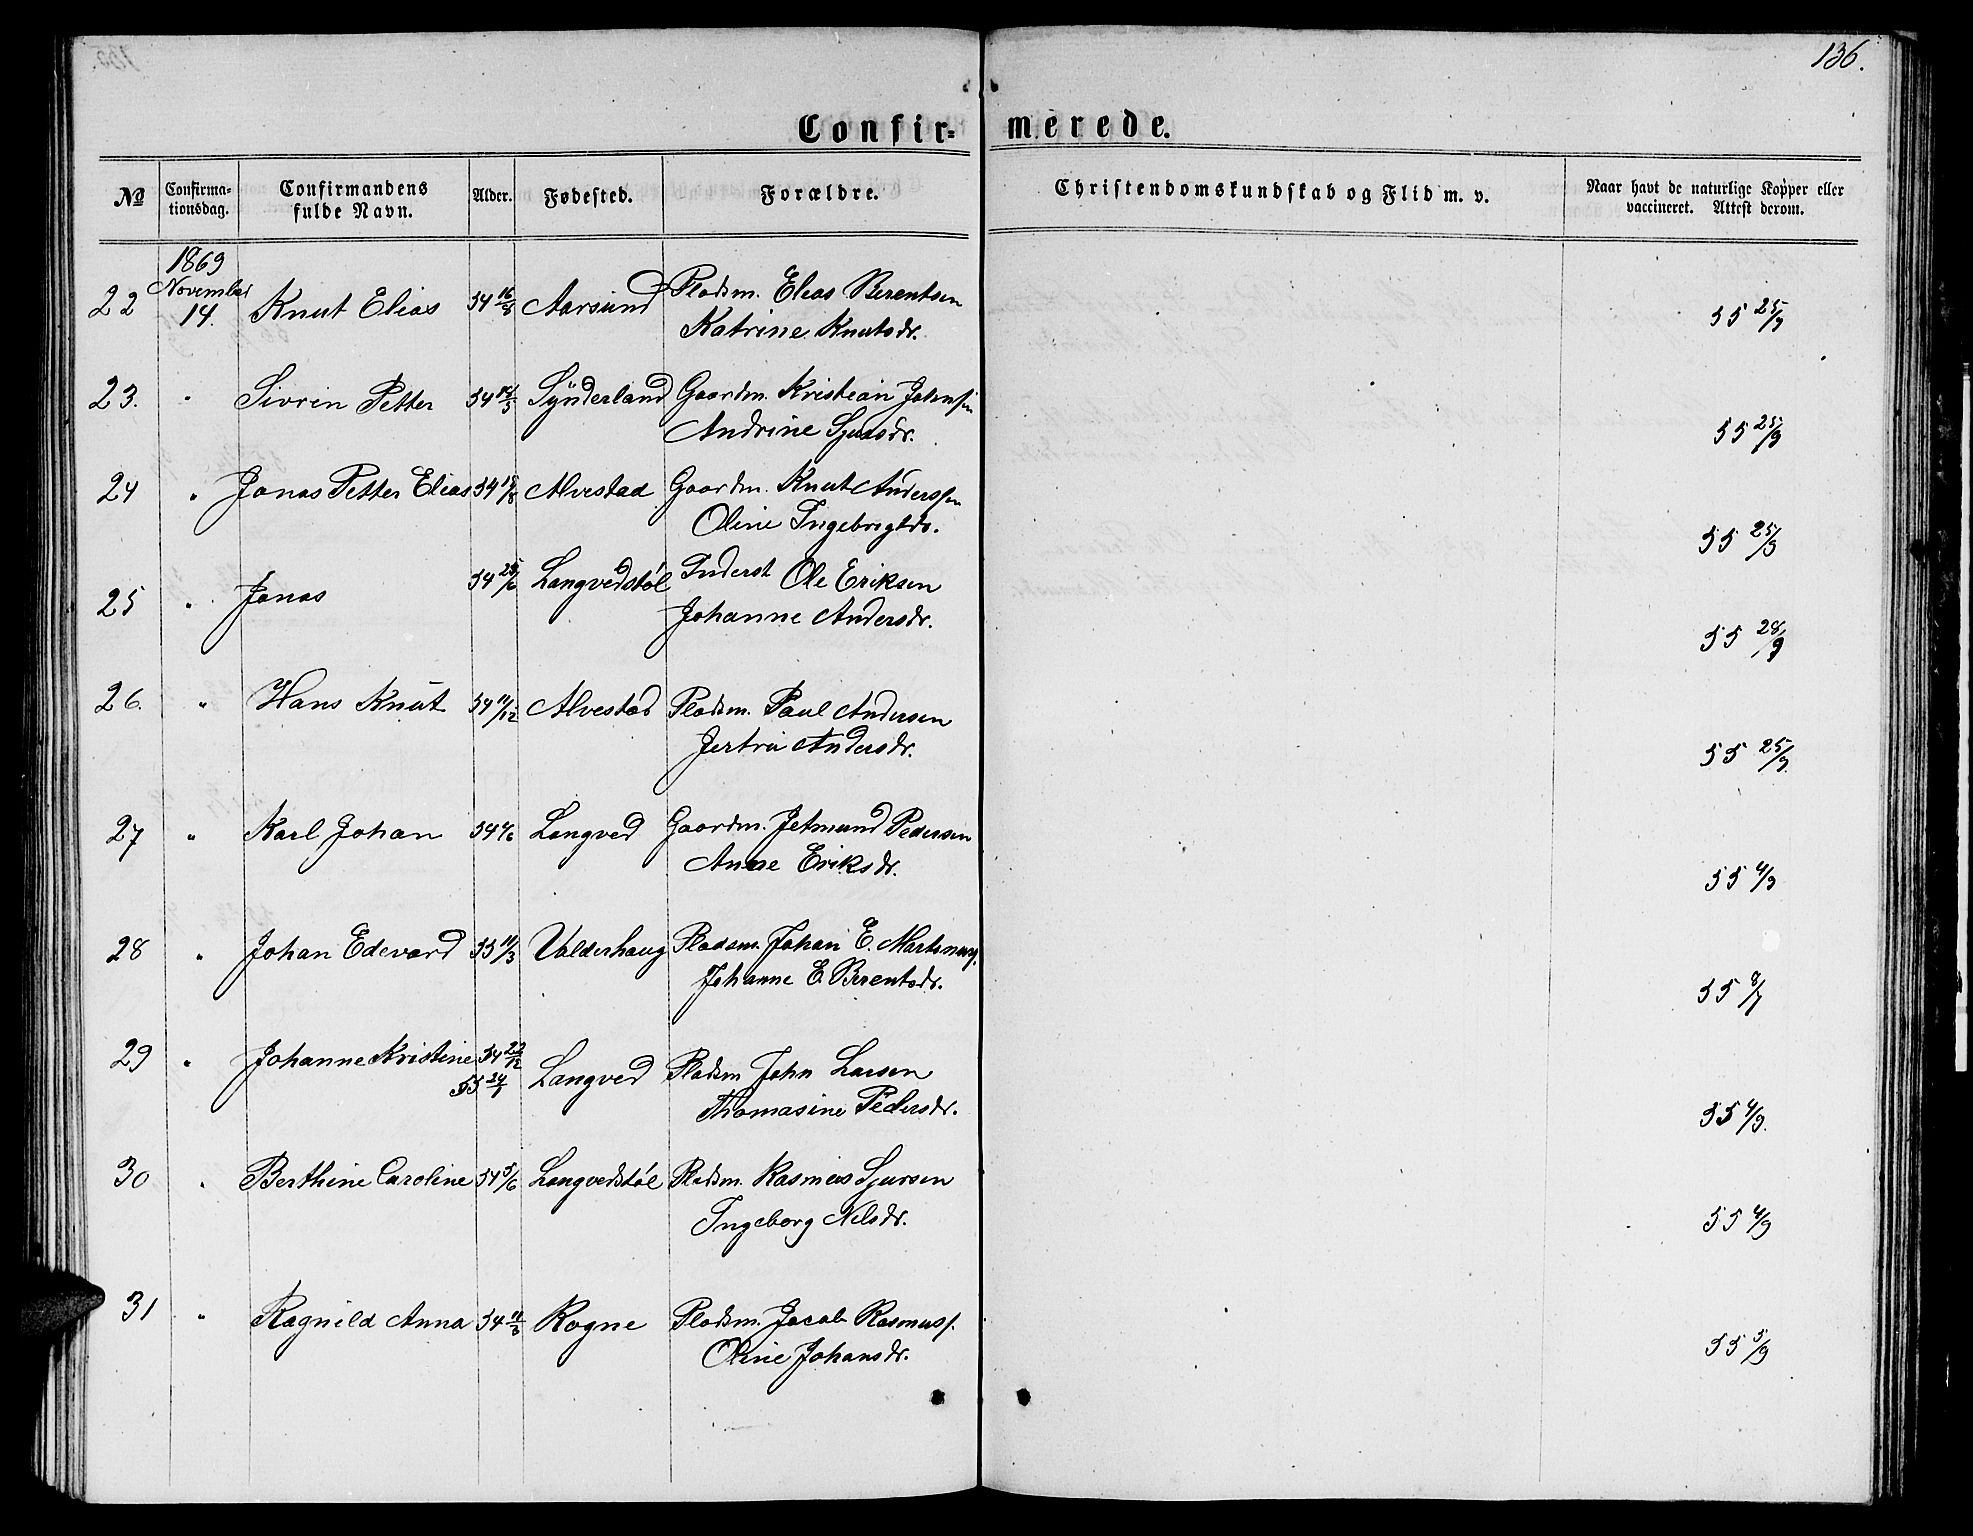 136.
Confir- merede.
No Confirma-tionsdag. Confirmandens fulde Navn. Alder. Fødested. Forældre. Christendomskundskab og Flid m. v. Naar havt de naturlige Kopper eller vaccineret. Attest derom.
1869
November
22 14. Knut Elias 54 16/8 Aarsund Pladsm. Elias Berentsen 55 25/9
Katrine Knutsdr.
23. " Sivrin Petter 54 Synderland Gaardm. Kristian Johnsen 55 25/9
Andrine Sjursdr.
24 " Jonas Petter Elias 54 18/8 Alvestad Gaardm. Knut Anderssen 55 25/9
Oline Ingebrigtdr.
25 " Jonas 54 25/6 Langvedstøl Inderst Ole Eriksen 55 28/9
Johanne Andersdr.
26. " Hans Knut 54 11/12 Alvestad Pladsm. Paul Andersen 55 25/9.
Jertru Andersdr.
27 " Karl Johan 54 Langved Gaardm. Jetmund Pedersen 55 4/9
Anne Eriksdr.
28 " Johan Edevard 55 11/3 Valderhaug Pladsm. Johan E. Martinus. 55 8/7
Johanne E. Berentsdr.
29 " Johanne Kristine 54 22/12 Langved Pladsm John Larsen 55 4/9.
55 24/7
Thomasine Pedersdr.
30 " Berthine Caroline 54 5/6 Langvedstøl Pladsm. Rasmus Sjursen 55 4/9
Ingeborg Nelsdr.
31 " Ragnild Anna 54 Rogne Pladsm. Jacob Rasmuss. 55 5/9
Oline Johansdr.